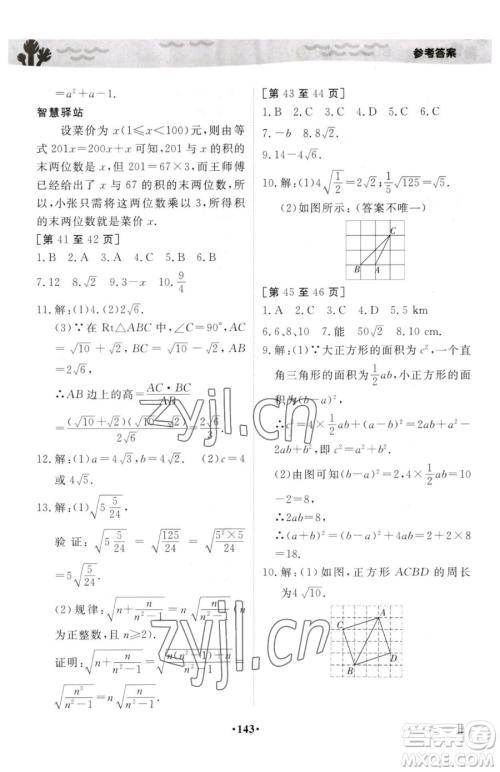 参考答案
=a²+a-1.
智慧驿站
设菜价为 x(1≤x<100)元,则由等
式 201x=200x+x 可知,201 与 x 的积的
末两位数是 x,因为 201=67×3,而王师傅
已算出了 x 与 67 的积的末两位数,所
以,小张只需将这两位数乘以 3,所得积的
末两位数就是菜价 x.
[第 41 至 42 页]
1.B 2.D 3.A 4.A 5.C 6.B
7.12 8.√2 9.3-x 10.9/4
11.解:(1)4.(2)2√6.
(3)∵在 Rt△ABC 中,∠C=90°,AC
=√10+√2,BC=√10-√2,AB=
2√6,
∴AB 边上的高=AC·BC/AB
=(√10+√2)(√10-√2)/2√6=8/2√6=2√6/3.
12.解:(1)a=4√3,b=√6. (2)c=
4√5.
13.解:(1)√(5 5/24)=5√(5/24)
验证:√(5 5/24)=√(125/24)=√(5²×5/24)
=5√(5/24).
(2)规律:√(n+n/(n²-1))=n√(n/(n²-1))(n
为正整数,n≥2).
证明:√(n+n/(n²-1))=
√(n³/(n²-1))=n√(n/(n²-1)).
[第 43 至 44 页]
1.B 2.C 3.C 4.C 5.D 6.C
7.-b 8.8√2.
9.14-4√5.
10.解:(1)4√(1/2)=2√2;(1/5)√125=√5.
(2)如图所示:(答案不唯一)
C
B A
[第 45 至 46 页]
1.C 2.A 3.D 4.A 5.5 km
6.6、8、10 7.能 50√2 8.10 cm
9.解:(1)∵大正方形的面积为 c²,一个直
角三角形的面积为 1/2ab,小正方形的面
积为(b-a)²,
∴c²=4×1/2ab+(b-a)²=2ab+a²-
2ab+b²,即 c²=a²+b².
(2)由图可知:(b-a)²=2,4×1/2ab=
10-2=8,
∴2ab=8,
∴(a+b)²=(b-a)²+4ab=2+2×8=
18.
10.解:(1)如图,正方形 ACBD 的周长
为 4√10.
A
C
D
B
·143·
zyjl.cn
zyjl.cn
答案圈
MXQE.COM